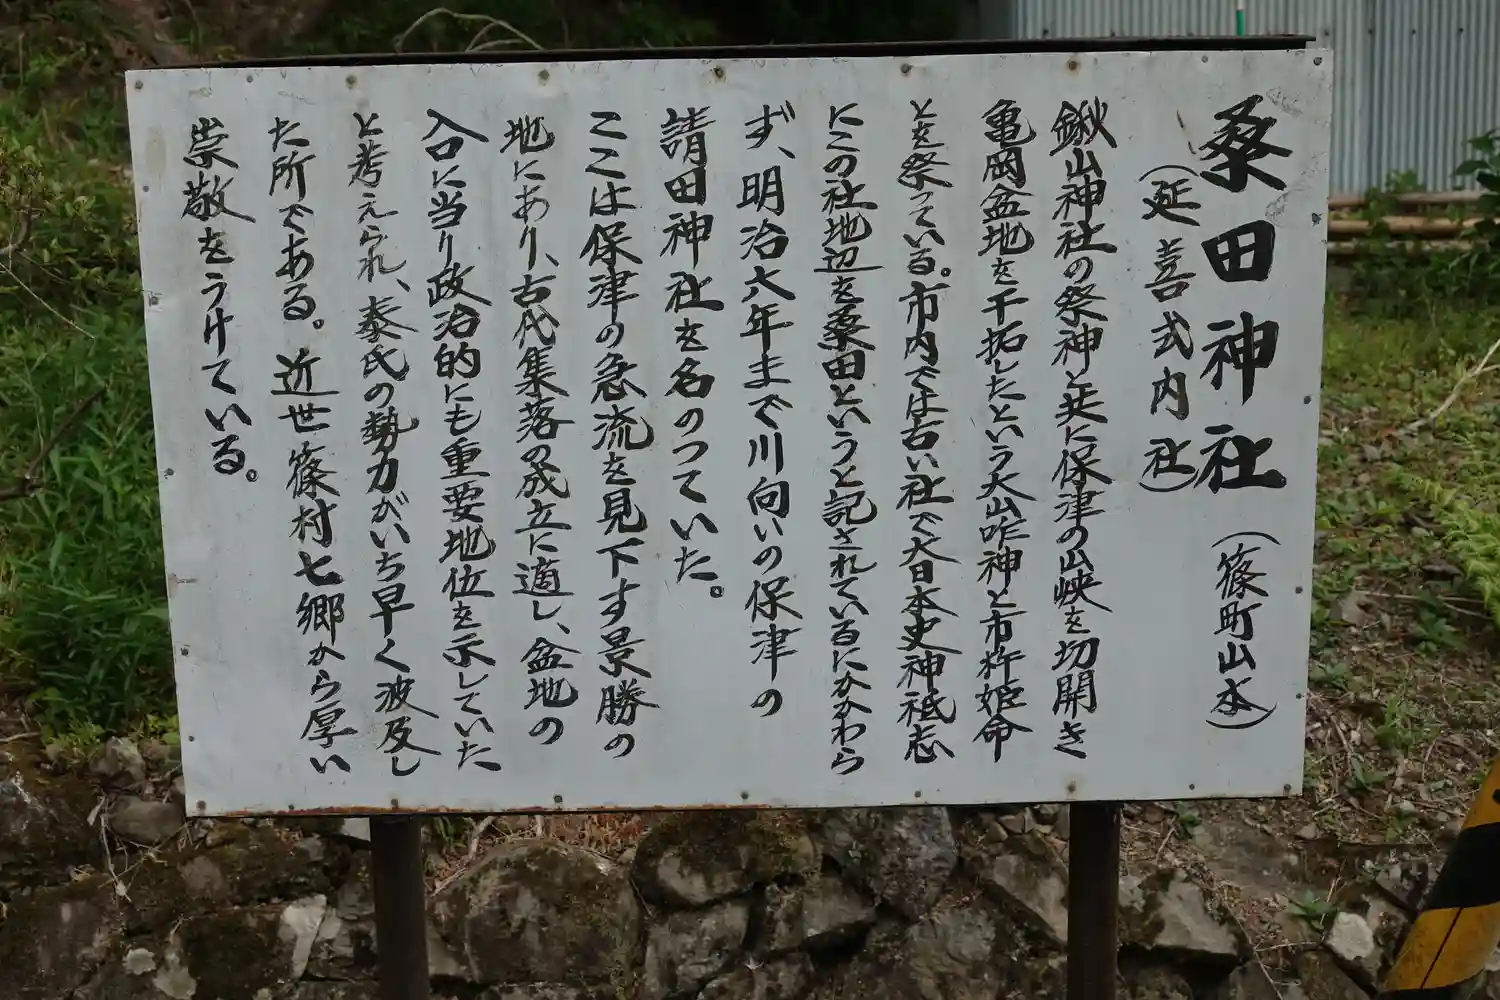 桑田神社 (篠町山本)
(延喜式内社)
鍬山神社の祭神と共に保津の山峡を切開き
亀岡盆地を干拓したという大山咋神と市杵姫命
とを祭っている。市内では古い社で大日本史神祗志
にこの社地辺を桑田というと記されているにかかわら
ず、明治六年まで川向いの保津の
請田神社を名のっていた。
ここは保津の急流を見下す景勝の
地にあり、古代集落の成立に適し、盆地の
入口に当り政治的にも重要地位を示していた
と考えられ、秦氏の勢力がいち早く波及し
た所である。近世篠村七郷から厚い
崇敬をうけている。